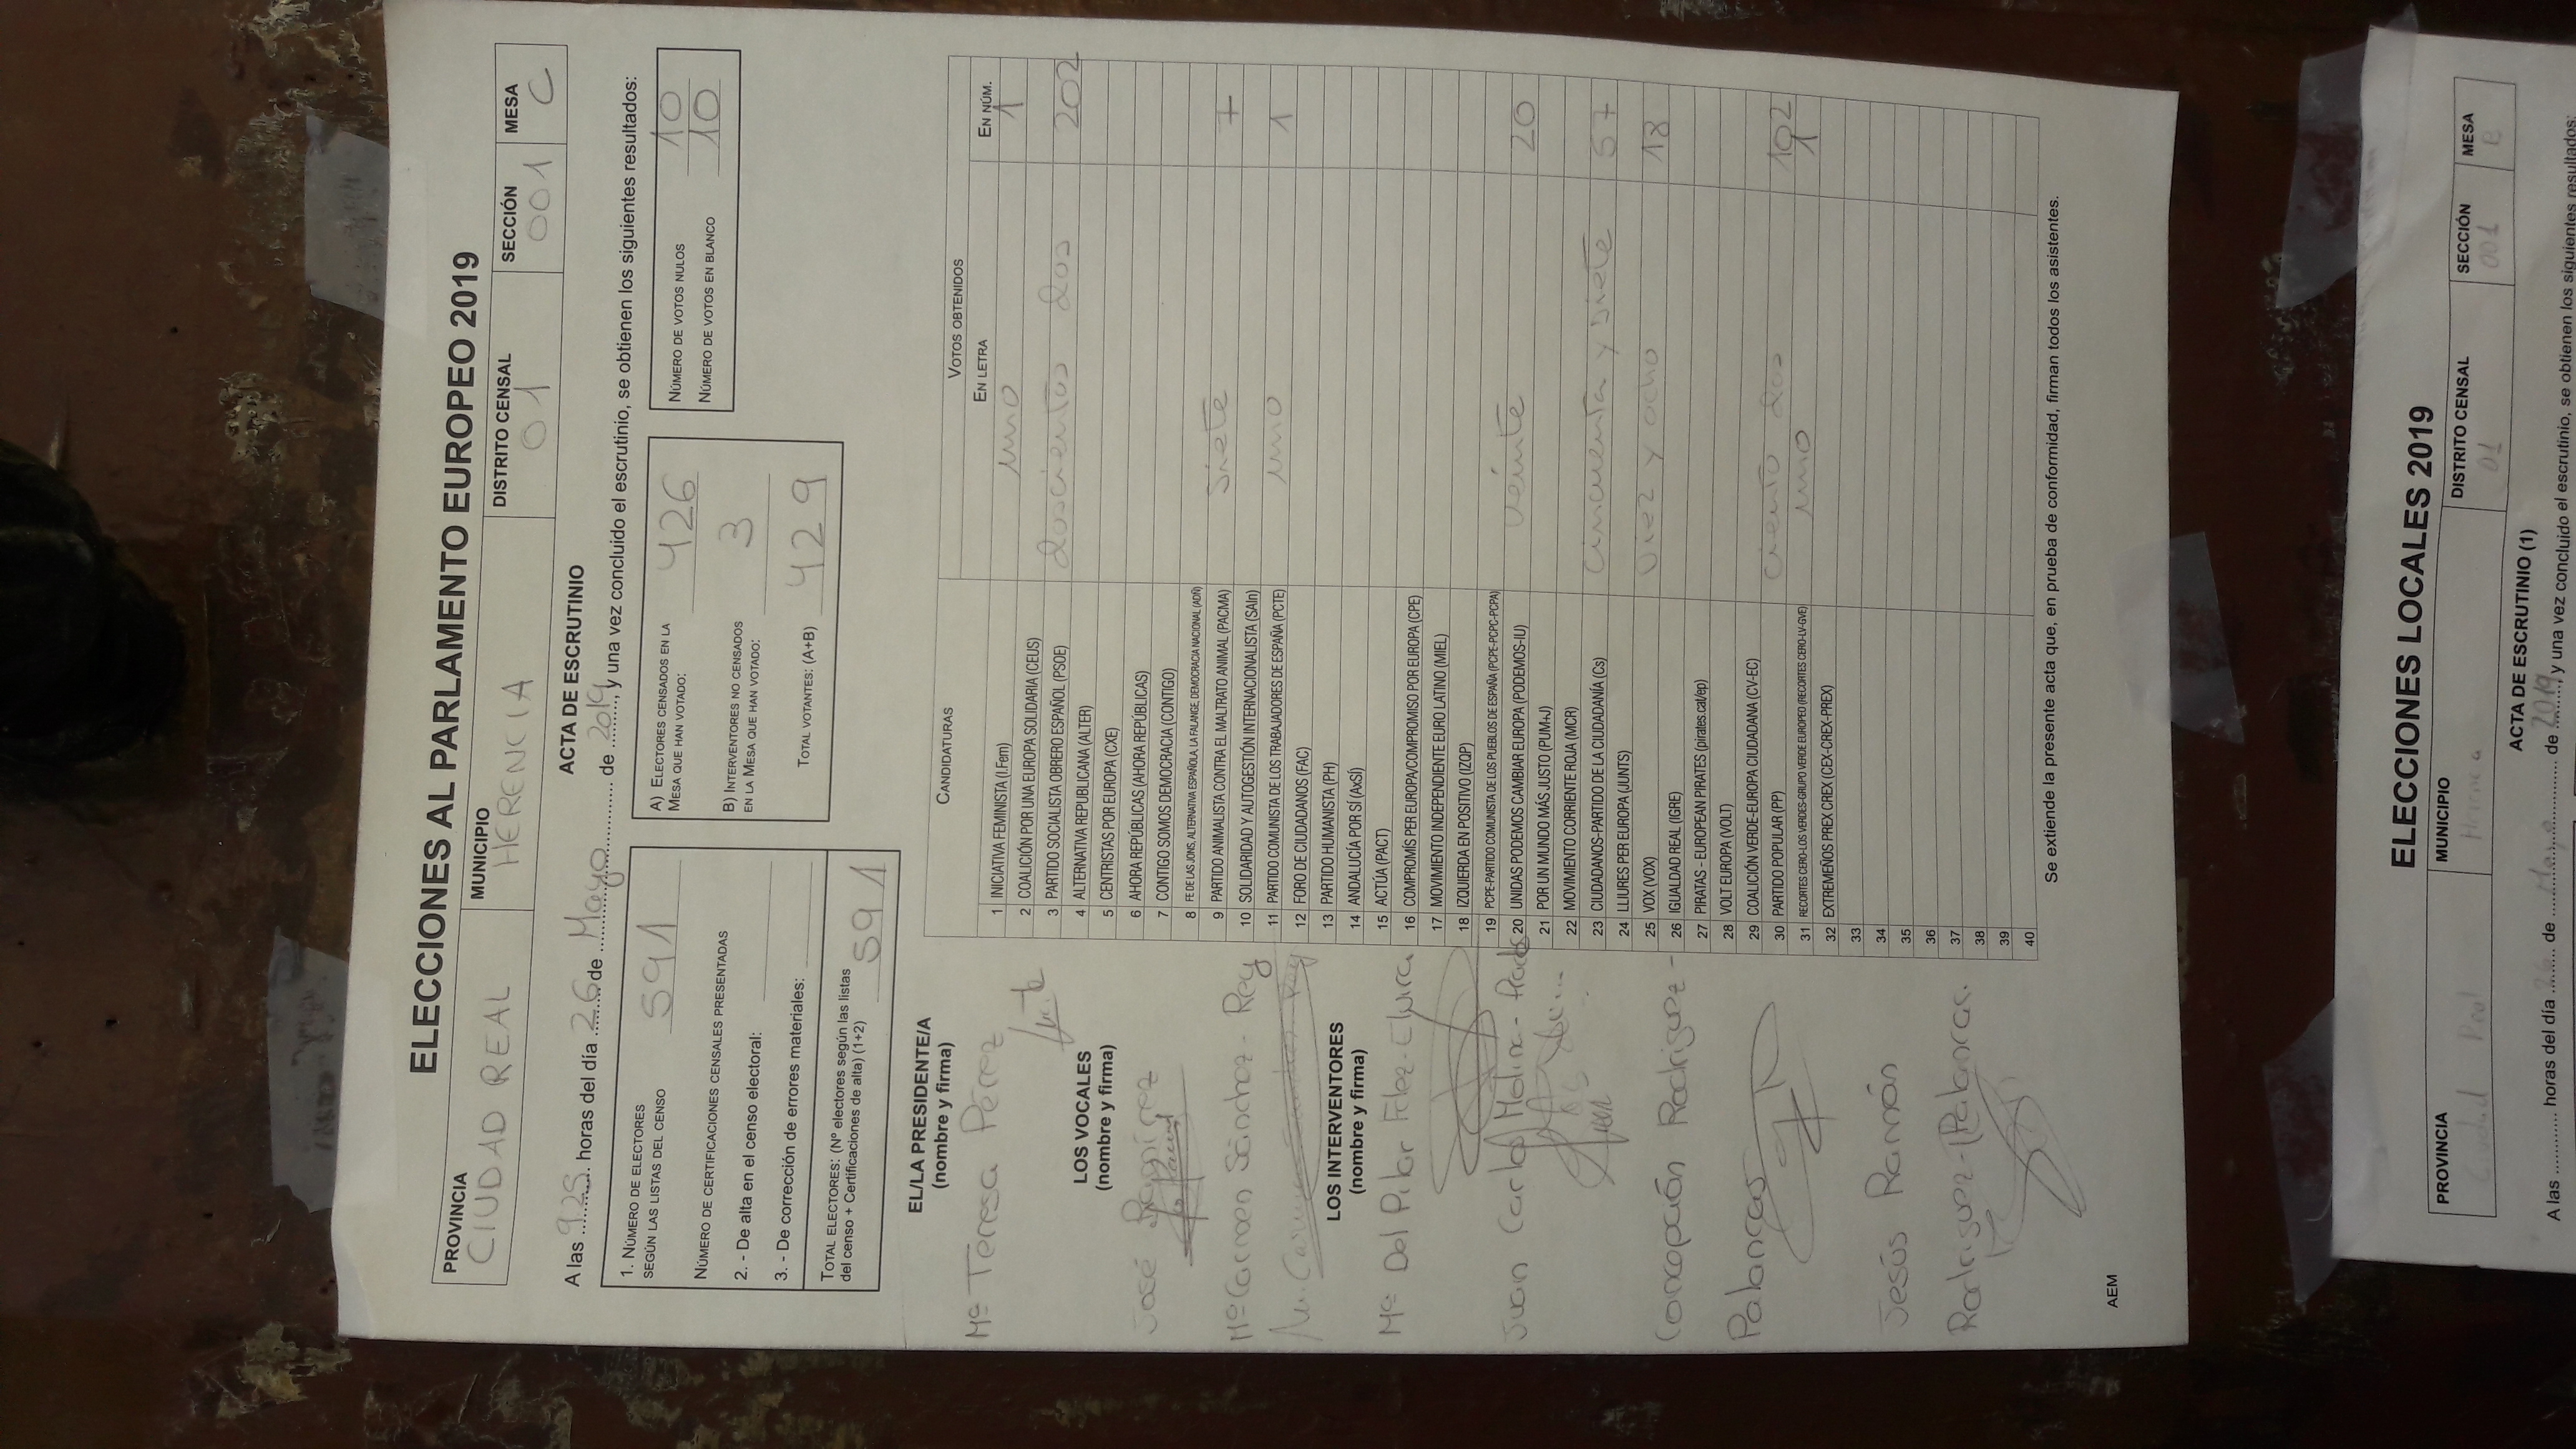 ELECCIONES AL PARLAMENTO EUROPEO 2019
PROVINCIA MUNICIPIO DISTRITO CENSAL SECCIÓN MESA
CIUDAD REAL HERENCIA 01 001 C
ACTA DE ESCRUTINIO
A las 9,25 horas del día 26 de Mayo de 2019, y una vez concluido el escrutinio, se obtienen los siguientes resultados:
1. NÚMERO DE ELECTORES
SEGÚN LAS LISTAS DEL CENSO 591
NÚMERO DE CERTIFICACIONES CENSALES PRESENTADAS
2. - De alta en el censo electoral:
3. - De corrección de errores materiales:
TOTAL ELECTORES: (Nº electores según las listas
del censo + Certificaciones de alta) (1+2) 591
A) ELECTORES CENSADOS EN LA
MESA QUE HAN VOTADO: 426
B) INTERVENTORES NO CENSADOS
EN LA MESA QUE HAN VOTADO: 3
TOTAL VOTANTES: (A+B) 429
NÚMERO DE VOTOS NULOS 10
NÚMERO DE VOTOS EN BLANCO 10
EL/LA PRESIDENTE/A
(nombre y firma)
Mª Teresa Pérez
LOS VOCALES
(nombre y firma)
José Ramírez
Mª Carmen Sánchez - Rey
LOS INTERVENTORES
(nombre y firma)
Mª Del Pilar Fdez-
Juan Carlos Molina - Prados
Concepción Rodriguez -
Palancas
Jesús Ramón
Rodriguez-Palancas.
CANDIDATURAS VOTOS OBTENIDOS
EN LETRA EN NÚM.
1 INICIATIVA FEMINISTA (I.Fem) uno 1
2 COALICIÓN POR UNA EUROPA SOLIDARIA (CEUS)
3 PARTIDO SOCIALISTA OBRERO ESPAÑOL (PSOE) doscientos dos 202
4 ALTERNATIVA REPUBLICANA (ALTER)
5 CENTRISTAS POR EUROPA (CXE)
6 AHORA REPÚBLICAS (AHORA REPÚBLICAS)
7 CONTIGO SOMOS DEMOCRACIA (CONTIGO)
8 FE DE LAS JONS, ALTERNATIVA ESPAÑOLA, LA FALANGE, DEMOCRACIA NACIONAL (ADÑ)
9 PARTIDO ANIMALISTA CONTRA EL MALTRATO ANIMAL (PACMA) siete 7
10 SOLIDARIDAD Y AUTOGESTIÓN INTERNACIONALISTA (SAIn)
11 PARTIDO COMUNISTA DE LOS TRABAJADORES DE ESPAÑA (PCTE) uno 1
12 FORO DE CIUDADANOS (FAC)
13 PARTIDO HUMANISTA (PH)
14 ANDALUCÍA POR SÍ (AxSÍ)
15 ACTÚA (PACT)
16 COMPROMÍS PER EUROPA/COMPROMISO POR EUROPA (CPE)
17 MOVIMIENTO INDEPENDIENTE EURO LATINO (MIEL)
18 IZQUIERDA EN POSITIVO (IZQP)
19 PCPE-PARTIDO COMUNISTA DE LOS PUEBLOS DE ESPAÑA (PCPE-PCPC-PCPA)
20 UNIDAS PODEMOS CAMBIAR EUROPA (PODEMOS-IU) veinte 20
21 POR UN MUNDO MÁS JUSTO (PUM+J)
22 MOVIMIENTO CORRIENTE ROJA (MCR)
23 CIUDADANOS-PARTIDO DE LA CIUDADANÍA (Cs) cincuenta y siete 57
24 LLIURES PER EUROPA (JUNTS)
25 VOX (VOX) Diez y ocho 18
26 IGUALDAD REAL (IGRE)
27 PIRATAS - EUROPEAN PIRATES (pirates.cat/ep)
28 VOLT EUROPA (VOLT)
29 COALICIÓN VERDE-EUROPA CIUDADANA (CV-EC)
30 PARTIDO POPULAR (PP) ciento dos 102
31 RECORTES CERO-LOS VERDES-GRUPO VERDE EUROPEO (RECORTES CERO-LV-GVE) uno 1
32 EXTREMEÑOS PREX CREX (CEX-CREX-PREX)
33
34
35
36
37
38
39
40
Se extiende la presente acta que, en prueba de conformidad, firman todos los asistentes.
AEM
ELECCIONES LOCALES 2019
PROVINCIA MUNICIPIO DISTRITO CENSAL SECCIÓN MESA
Ciudad Real Herencia 01 001 B
ACTA DE ESCRUTINIO (1)
A las horas del día 26 de Mayo de 2019, y una vez concluido el escrutinio, se obtienen los siguientes resultados: